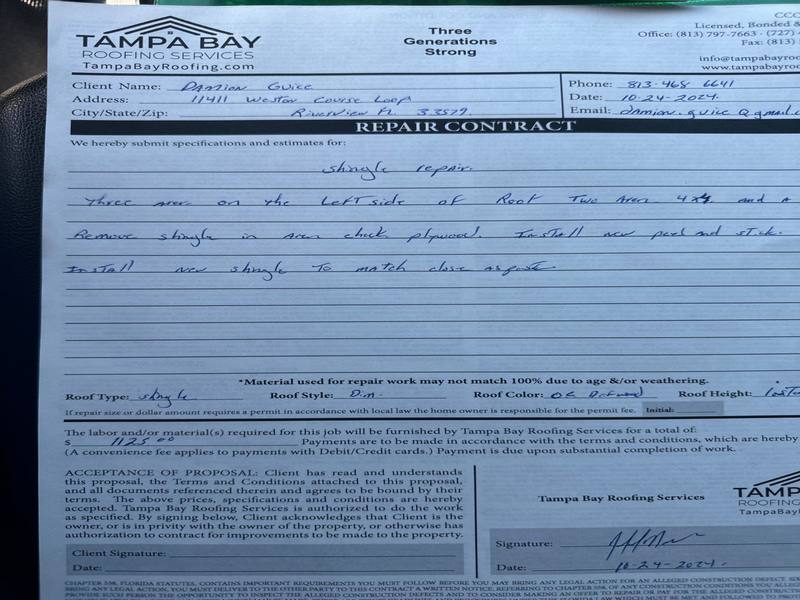 TAMPA BAY
ROOFING SERVICES
TampaBayRoofing.com
Three
Generations
Strong
CCC
Licensed, Bonded &
Office: (813) 797-7663 · (727)
Fax: (813)
info@tampabayroo
www.tampabayroo
Client Name: Damion Guice
Address: 11411 Weston Course Loop
City/State/Zip: Riverview FL 33579
Phone: 813-468 6641
Date: 10-24-2024
Email: damion.guice@gmail.c
REPAIR CONTRACT
We hereby submit specifications and estimates for:
Shingle repair.
Three area on the Left side of Roof Two Area 4x4 and a
Remove shingle in Area check plywood. Install new peel and stick.
Install new shingle To match close as
*Material used for repair work may not match 100% due to age &/or weathering.
Roof Type: shingle Roof Style: Dim. Roof Color: OC Driftwood Roof Height:
If repair size or dollar amount requires a permit in accordance with local law the home owner is responsible for the permit fee. Initial:
The labor and/or material(s) required for this job will be furnished by Tampa Bay Roofing Services for a total of:
$ 1125 00 Payments are to be made in accordance with the terms and conditions, which are hereby
(A convenience fee applies to payments with Debit/Credit cards.) Payment is due upon substantial completion of work.
ACCEPTANCE OF PROPOSAL: Client has read and understands
this proposal, the Terms and Conditions attached to this proposal,
and all documents referenced therein and agrees to be bound by their
terms. The above prices, specifications and conditions are hereby
accepted. Tampa Bay Roofing Services is authorized to do the work
as specified. By signing below, Client acknowledges that Client is the
owner, or is in privity with the owner of the property, or otherwise has
authorization to contract for improvements to be made to the property.
Client Signature:
Date:
Tampa Bay Roofing Services
TAMPA
ROOFING
TampaBayR
Signature:
Date: 10-24-2024
CHAPTER 558, FLORIDA STATUTES, CONTAINS IMPORTANT REQUIREMENTS YOU MUST FOLLOW BEFORE YOU MAY BRING ANY LEGAL ACTION FOR AN ALLEGED CONSTRUCTION DEFECT
BRING ANY LEGAL ACTION, YOU MUST DELIVER TO THE OTHER PARTY TO THIS CONTRACT A WRITTEN NOTICE, REFERRING TO CHAPTER 558, OF ANY CONSTRUCTION CONDITIONS YOU
PROVIDE SUCH PERSON THE OPPORTUNITY TO INSPECT THE ALLEGED CONSTRUCTION DEFECTS AND TO CONSIDER MAKING AN OFFER TO REPAIR OR PAY FOR THE ALLEGED